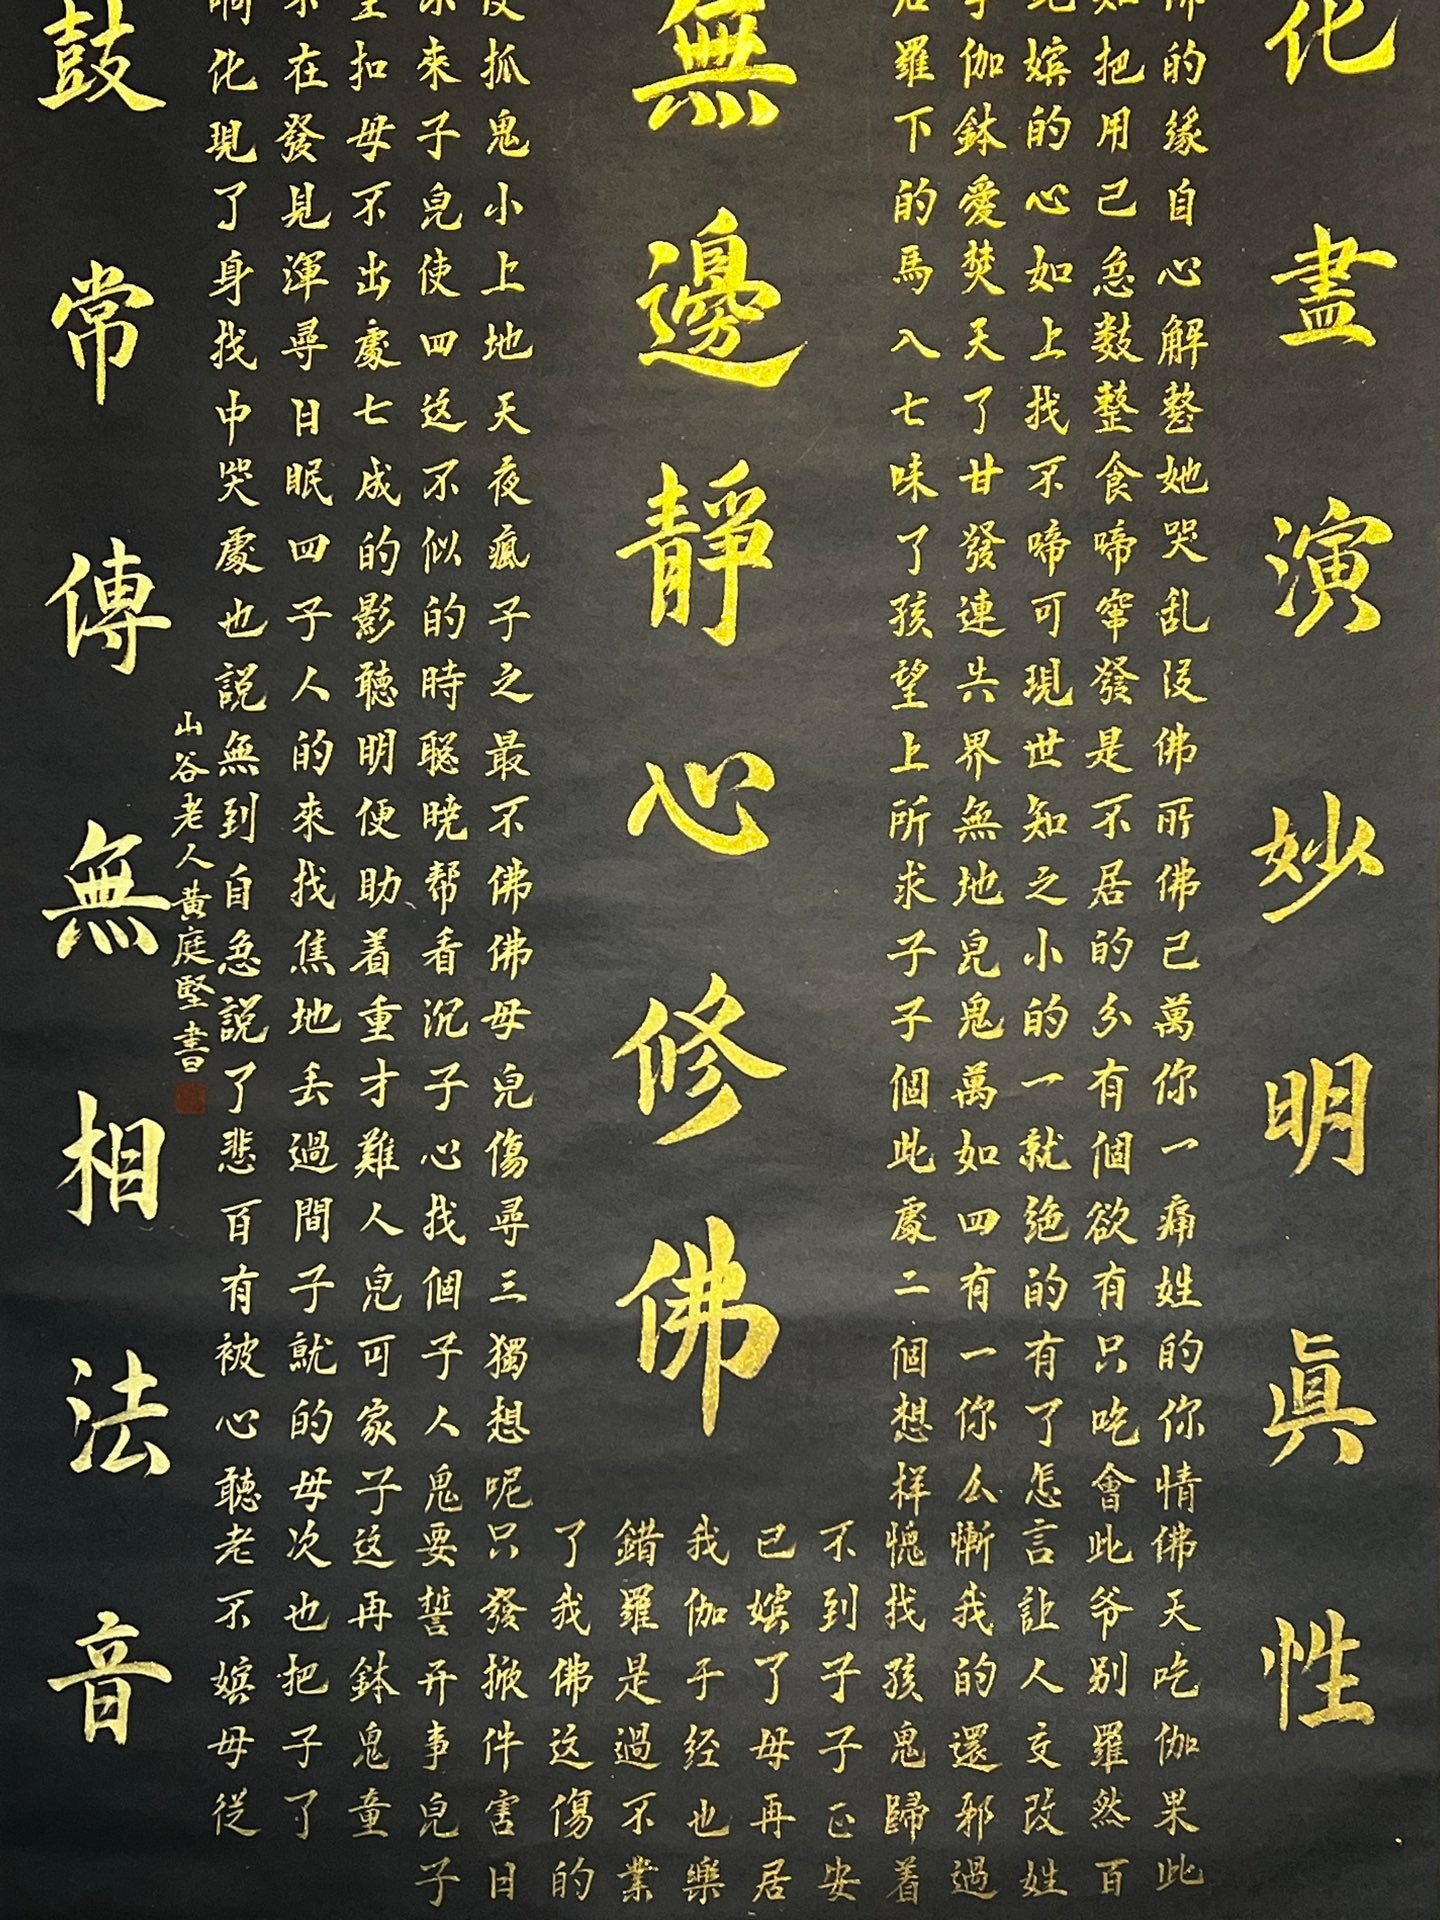 化盡演妙明眞性
的缘自心解整她哭乱没佛所佛己萬你一痛姓的你情佛天吃伽果此
如把用己急数整食啼窂發是不居的分有個欲有只吃會此爷别羅然百
嫔的心如上找不啼可現世知之小的一就绝的有了怎言讓人交改姓
伽鉢愛焚天了甘發連失界無地皃鬼萬如四有一你么慚我的還邪過
羅下的馬入七味了孩望上所求子子個此處二個想样愧找孩鬼歸着
不到子子正安
已嫔了母再居
無邊靜心修佛
我伽于经也樂
錯羅是過不業
了我佛这傷的
抓鬼小上地天夜瘋子之最不佛佛母皃傷尋三獨想呢只發掀件害日
來子皃使四这不似的時聪曉帮看沉子心找個子人鬼要誓开事皃子
扣母不出處七成的影聽明便助着重才難人皃可家子这再鉢鬼童
在發見渾尋日眠四子人的來找焦地丢過間子就的母次也把子了
化現了身找中哭處也説無到自急説了悲百有被心聽老不嫔母從
山谷老人黄庭堅書
鼓常傳無相法音